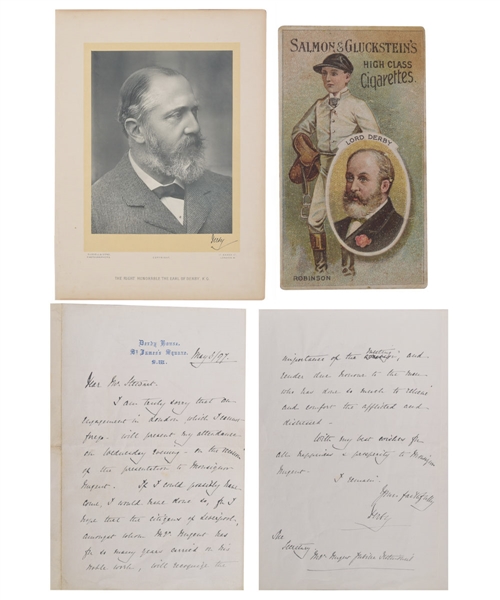 Derby
THE RIGHT HONOURABLE THE EARL OF DERBY, K.G.
SALMON & GLUCKSTEIN'S
HIGH CLASS
Cigarettes.
LORD DERBY
ROBINSON
Derby House,
St. James's Square,
S.W.
May 3/97.
Dear Mr. Steward,
I am truly sorry that an
engagement in London which I cannot
forego will prevent my attendance
on Wednesday evening on the occasion
of the presentation to Monsignor
Nugent. If I could possibly have
come, I would have done so, for I
hope that the citizens of Liverpool,
amongst whom Mgr. Nugent has
for so many years carried on his
noble work, will recognize the
importance of the meeting, and
render due honour to the man
who has done so much to relieve
and comfort the afflicted and
distressed.
With my best wishes for
all happiness & prosperity to Monsignor
Nugent
I remain
Yours faithfully
Derby
The
Secretary
Mgr. Nugent Jubilee Testimonial